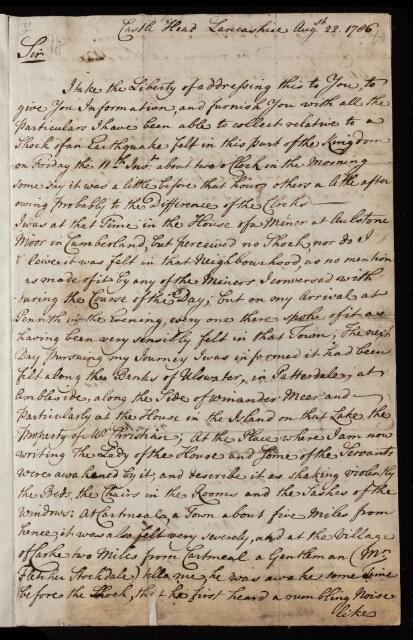 Castle Head Lancashire Augst. 22. 1786
Sir
I take the Liberty of addressing this to You, to
give You Information, and furnish You with all the
Particulars I have been able to collect relative to a
Shock of an Earthquake felt in this Part of the Kingdom
on Friday the 11th. Inst. about two o Clock in the Morning
some say it was a little before that hour others a little after
owing Probably to the Difference of the Clocks
I was at that Time in the House of a Miner at Aulstone
Moor in Cumberland, but perceived no Shock, nor do I
lieve it was felt in that Neighbourhood, as no mention
as made of it by any of the Miners I conversed with
during the Course of the Day; but on my Arrival at
Penrith in the Evening, every one there spoke of it as
having been very sensibly felt in that Town; The next
Day Pursuing my Journey I was informed it had been
felt along the Banks of Ulswater, in Patterdale, at
Ambleside, along the Side of Winander Meer and
Particularly at the House in the Island on that Lake the
Property of Mr. Christian; At the Place where I am now
writing the Lady of the House and some of the Servants
were awakened by it, and describe it as shaking violently
the Beds, the Chairs in the Rooms and the Sashes of the
Windows: At Cartmeal, a Town about five Miles from
hence it was also felt very severely, and at the Village
of Carke two Miles from Cartmeal a Gentleman (Mr.
Fletcher Stockdale) tells me, he was awake some time
before the Shock, that he first heard a rumbling Noise
like